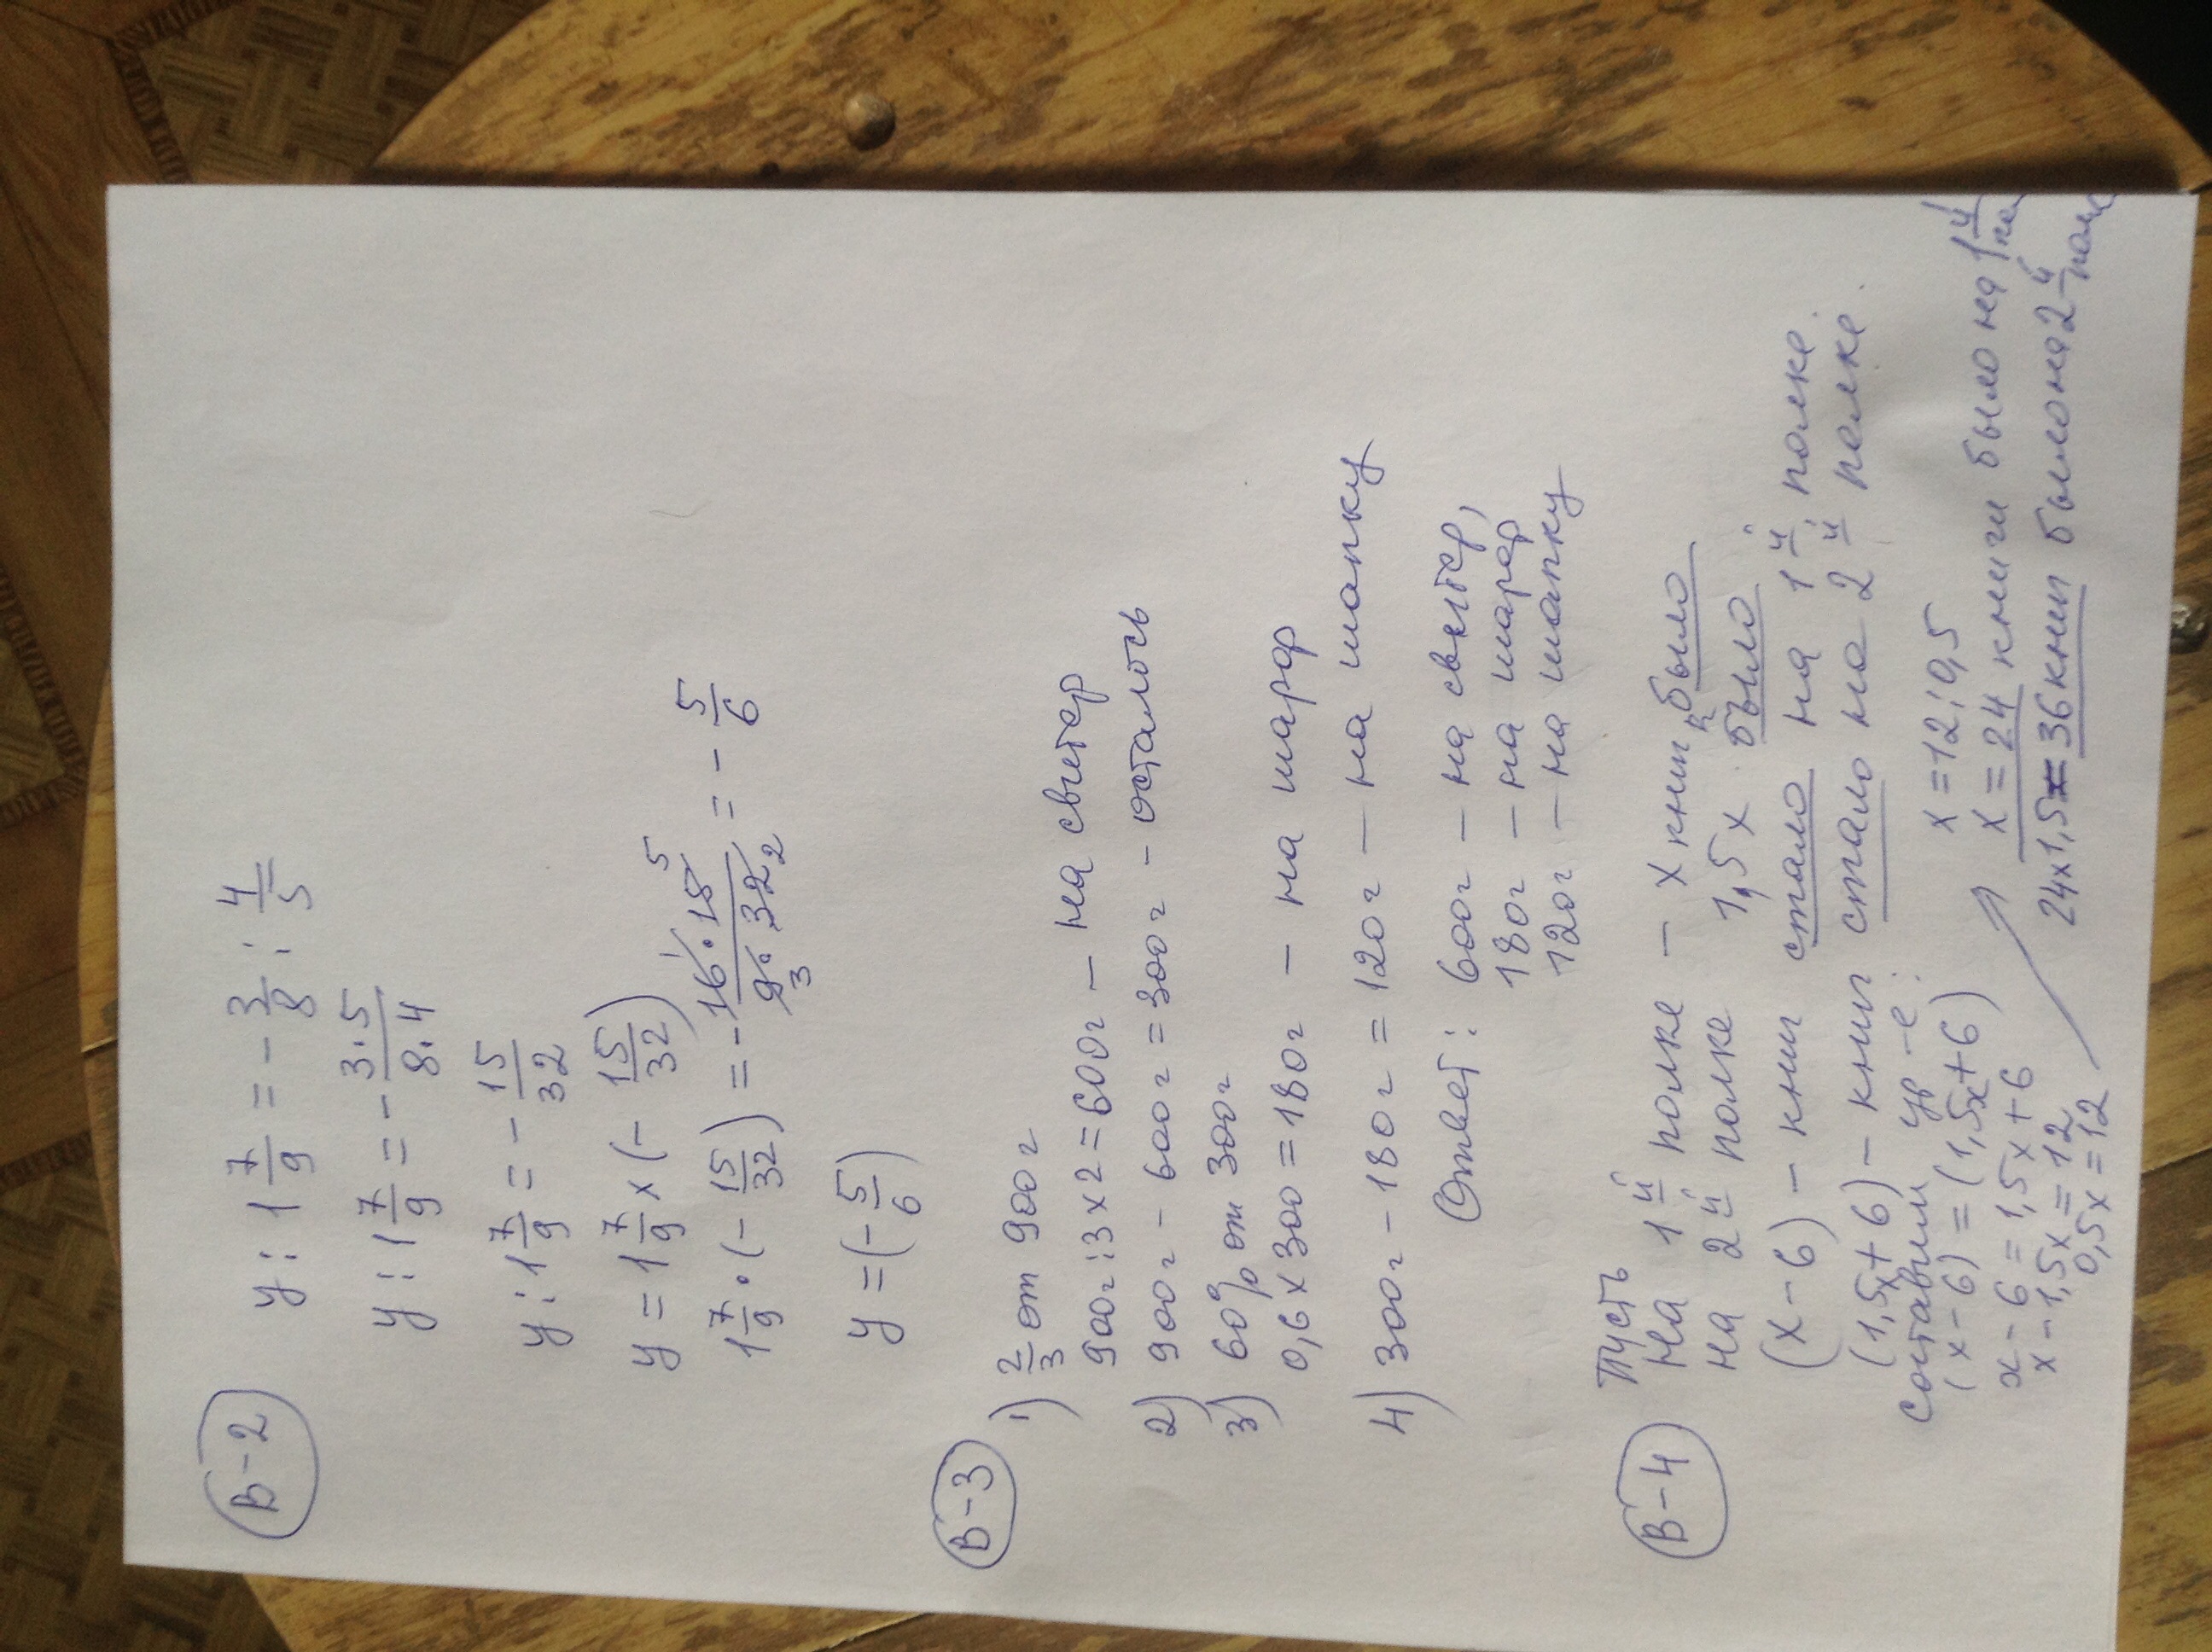 В-2
y : 1 7/9 = - 3/8 : 4/5
y : 1 7/9 = - 3·5/8·4
y : 1 7/9 = - 15/32
y = 1 7/9 x (- 15/32)
1 7/9 · (- 15/32) = - 16·15/9·32 = - 5/6
y = (- 5/6)
В-3
1) 2/3 от 900г
900г : 3 x 2 = 600г - на свитер
2) 900г - 600г = 300г - осталось
3) 60% от 300г
0,6 x 300 = 180г - на шарф
4) 300г - 180г = 120г - на шапку
Ответ: 600г - на свитер,
180г - на шарф
120г - на шапку
В-4
Пусть
на 1й полке - x книг было
на 2й полке 1,5x было
(x - 6) - книг стало на 1й полке.
(1,5x + 6) - книг стало на 2й полке.
Составим ур-е:
(x - 6) = (1,5x + 6)
x - 6 = 1,5x + 6
x - 1,5x = 12
0,5x = 12
x = 12 : 0,5
x = 24 книги было на 1й
24x1,5 = 36 книг было на 2й